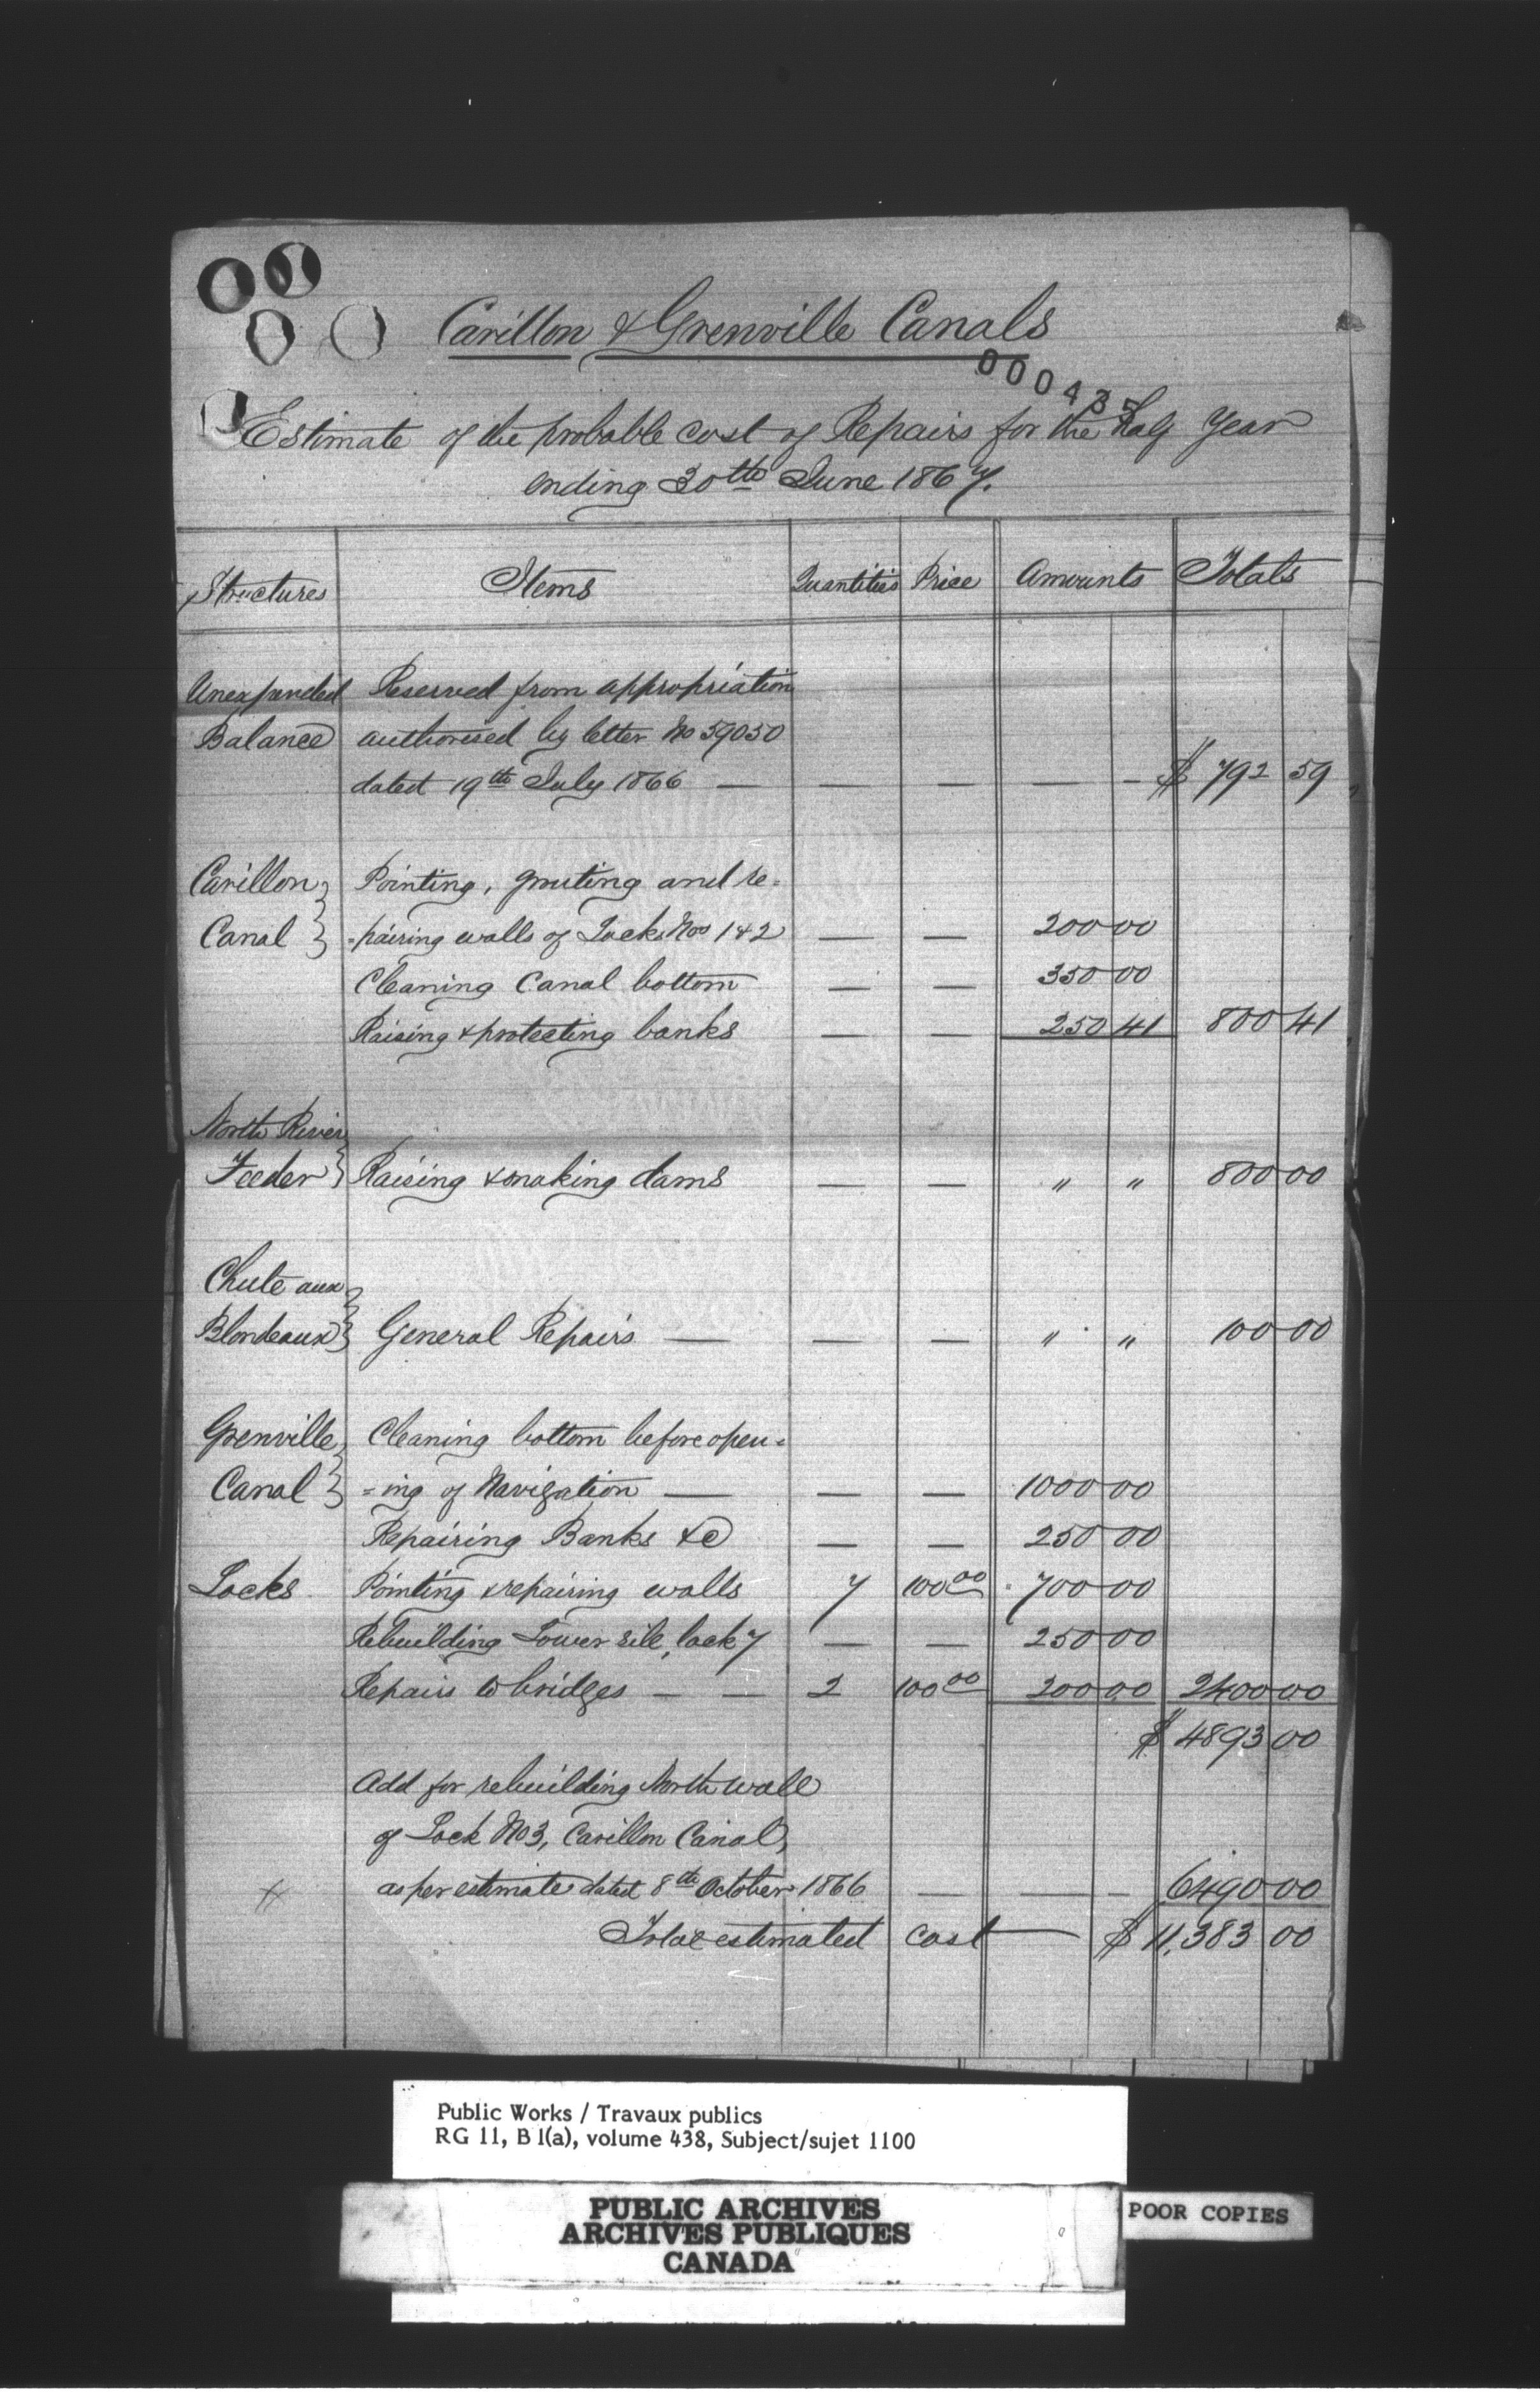 Carillon & Grenville Canals
000435
Estimate of the probable cost of Repairs for the half Year
ending 30th June 1867.
Structures Items Quantities Price Amounts Totals
Unexpended Reserved from appropriation
Balance authorised by letter No 59050
dated 19th July 1866 — — — — – $ 792 59
Carillon } Pointing, grouting and re=
Canal } =pairing walls of Locks Nos 1 & 2 — — 200 00
Cleaning Canal bottom — — 350 00
Raising & protecting banks — — 250 41 800 41
North River }
Feeder } Raising & making dams — — " " 800 00
Chute aux }
Blondeaux } General Repairs — — — " " 100 00
Grenville } Cleaning bottom before open=
Canal } =ing of Navigation — — — 1000 00
Repairing Banks &c — — 250 00
Locks Pointing & repairing walls 7 100 00 700 00
Rebuilding Lower sill, lock 7 — — 250 00
Repairs to bridges — — 2 100 00 200 00 2400 00
$ 4893 00
Add for rebuilding North wall
of Lock No 3, Carillon Canal,
as per estimate dated 8th October 1866 — — – 6490 00
Total estimated cost — $ 11,383 00
Public Works / Travaux publics
RG 11, B 1(a), volume 438, Subject/sujet 1100
PUBLIC ARCHIVES
ARCHIVES PUBLIQUES
CANADA
POOR COPIES